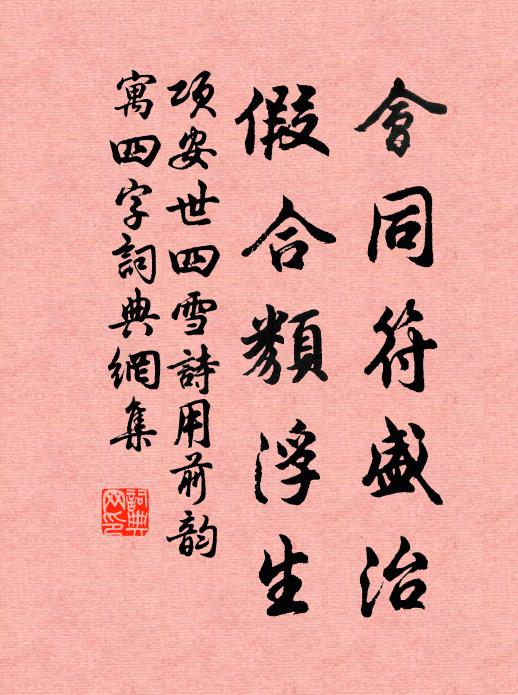 會同符盛治
假合類浮生
項安世四雪詩用前韵
寓四字詞典網集
詞典
网印